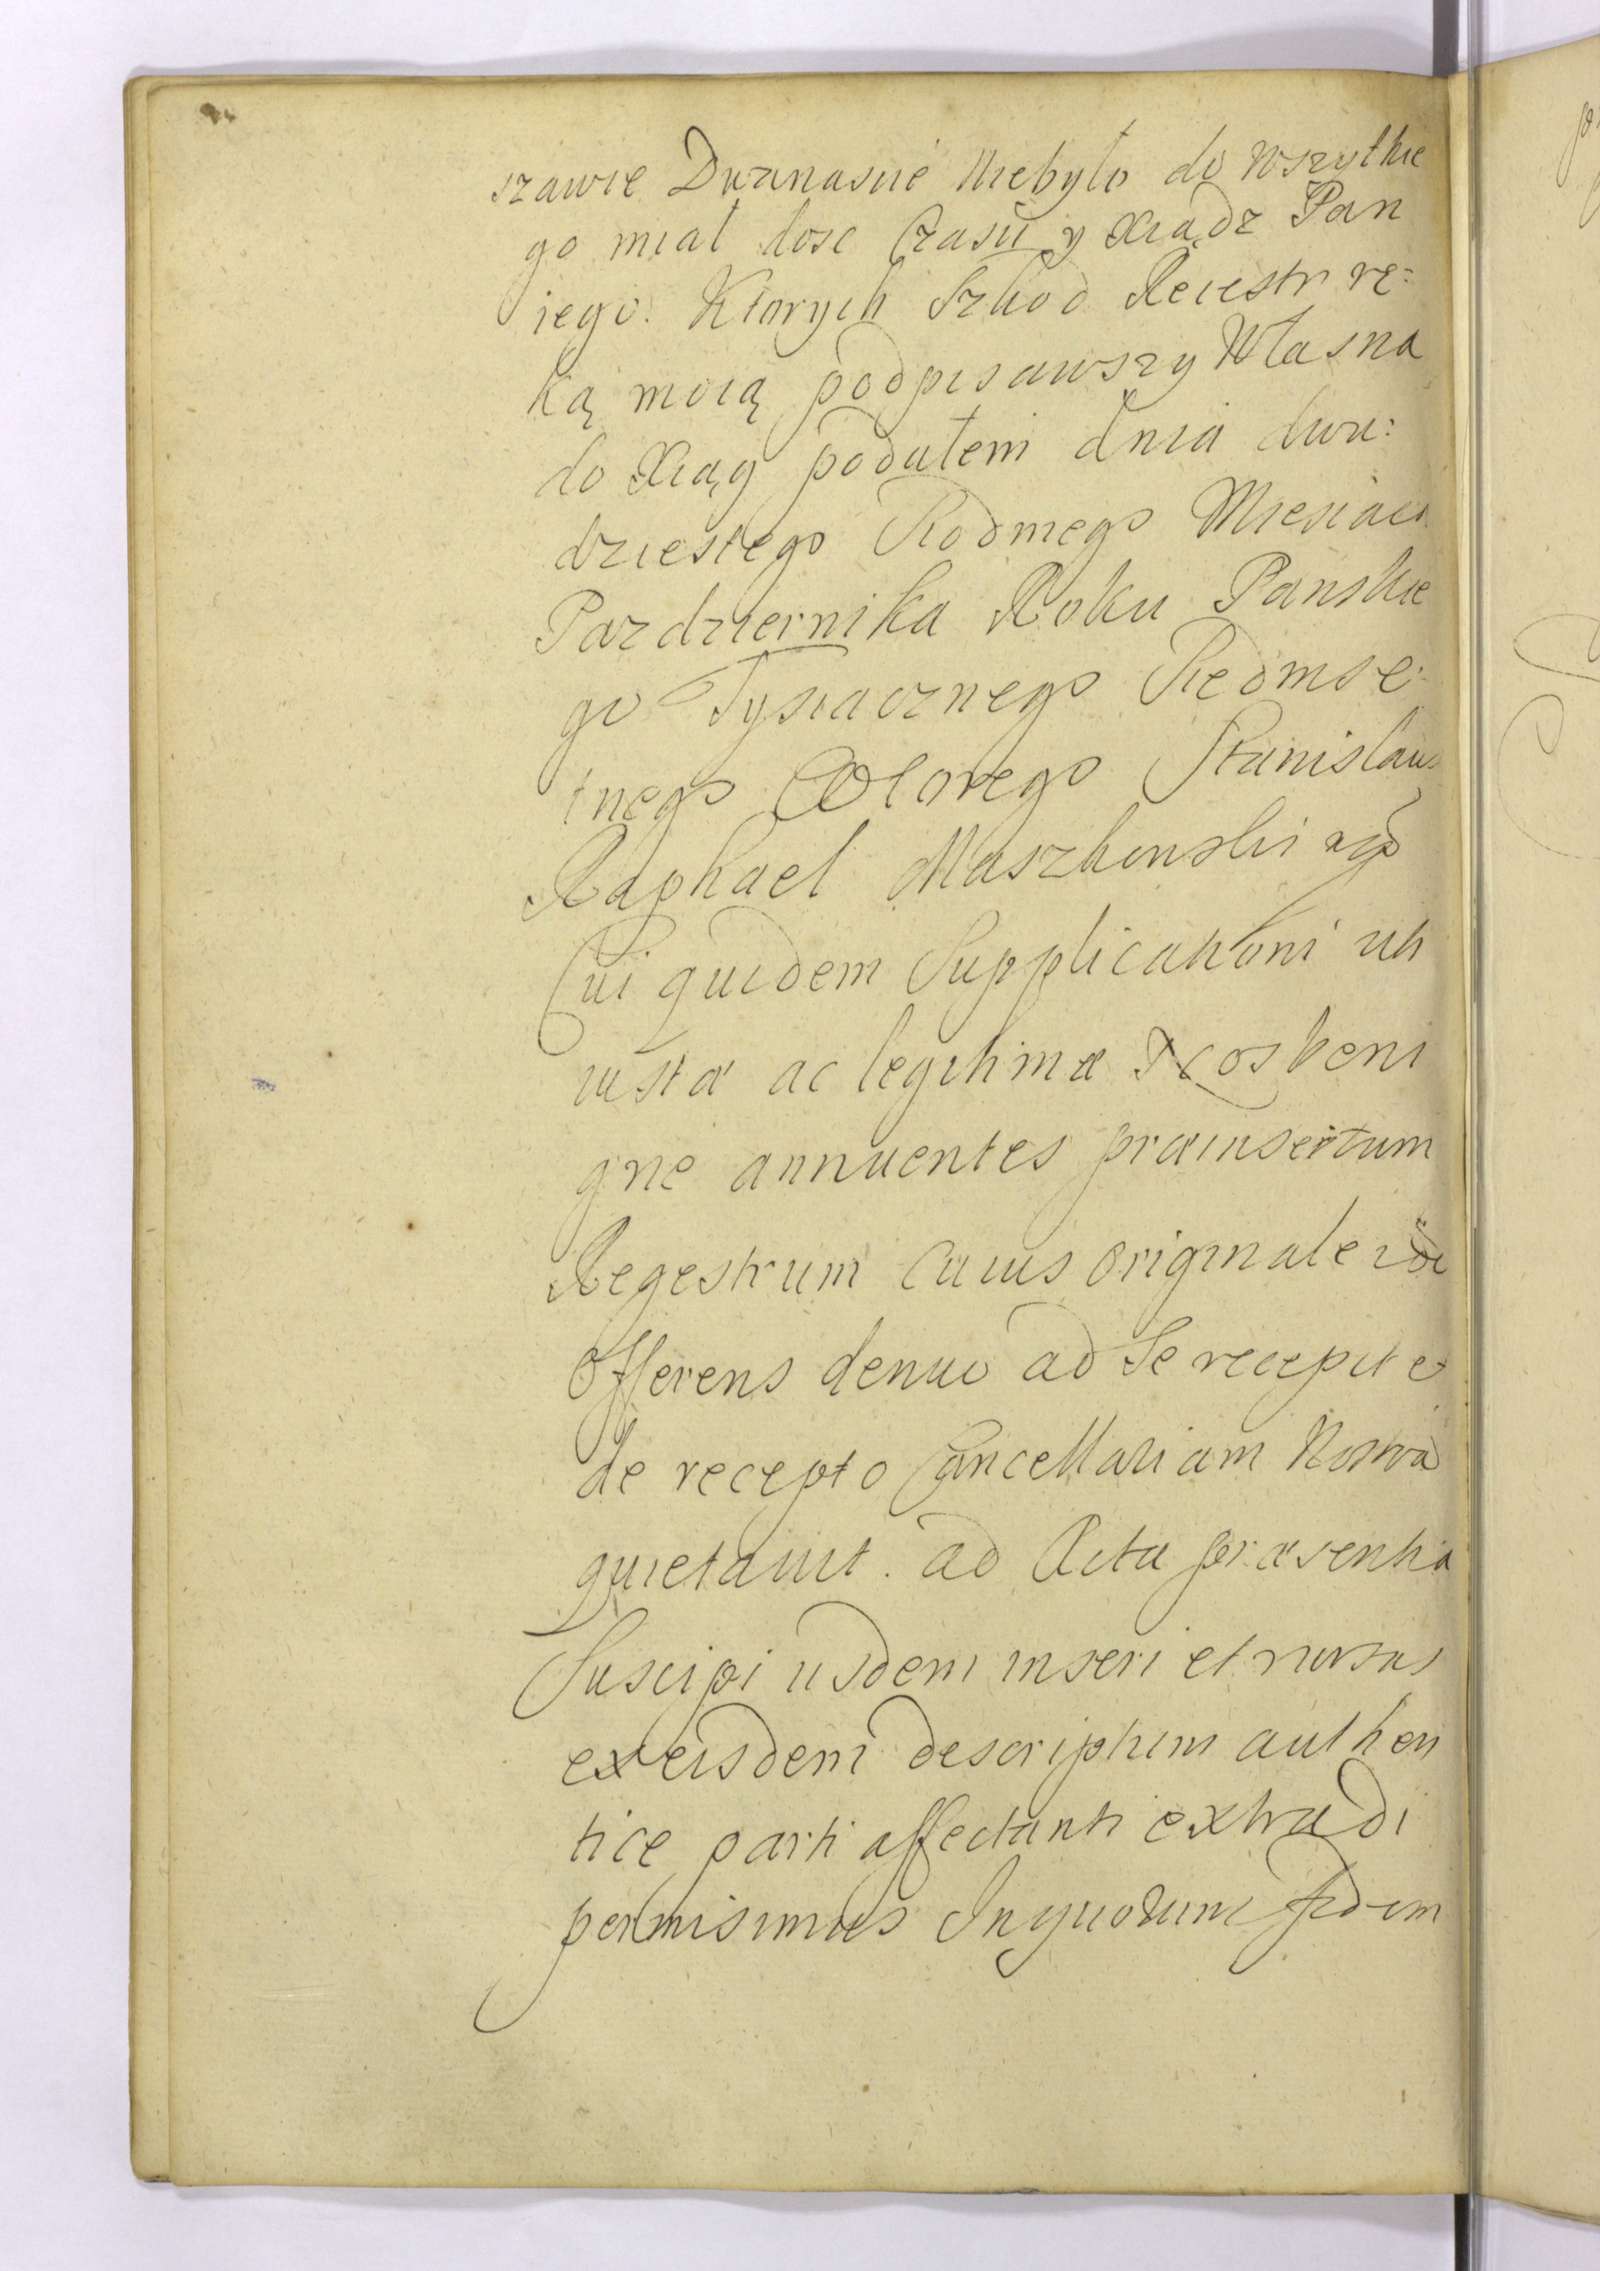 szawie Dwanascie niebyło do wszytkie
go miał dosc Czasu y Xiądz Pan
iego. Ktorych Szkod Reiestr rę:
ką moią podpisawszy Własną
do Xiąg podałem dnia dwu:
dziestego Siodmego Miesiąca
Pazdziernika Roku Panskie
go Tysiącznego Siedmse:
tnego Wtorego Stanisław
Raphael Maszkowski mp
Cui quidem Supplicationi uti
iustæ ac legitimæ Nos beni
gne annuentes præinsertum
Regestrum cuius originale idē
Offerens denuo ad Se recepit et
de recepto Cancellariam Nostrā
quietavit. ad Acta præsentia
Suscipi iisdem inseri et rursus
ex eisdem descriptum authen
tice parti affectanti extradi
permisimus In quorum fidem